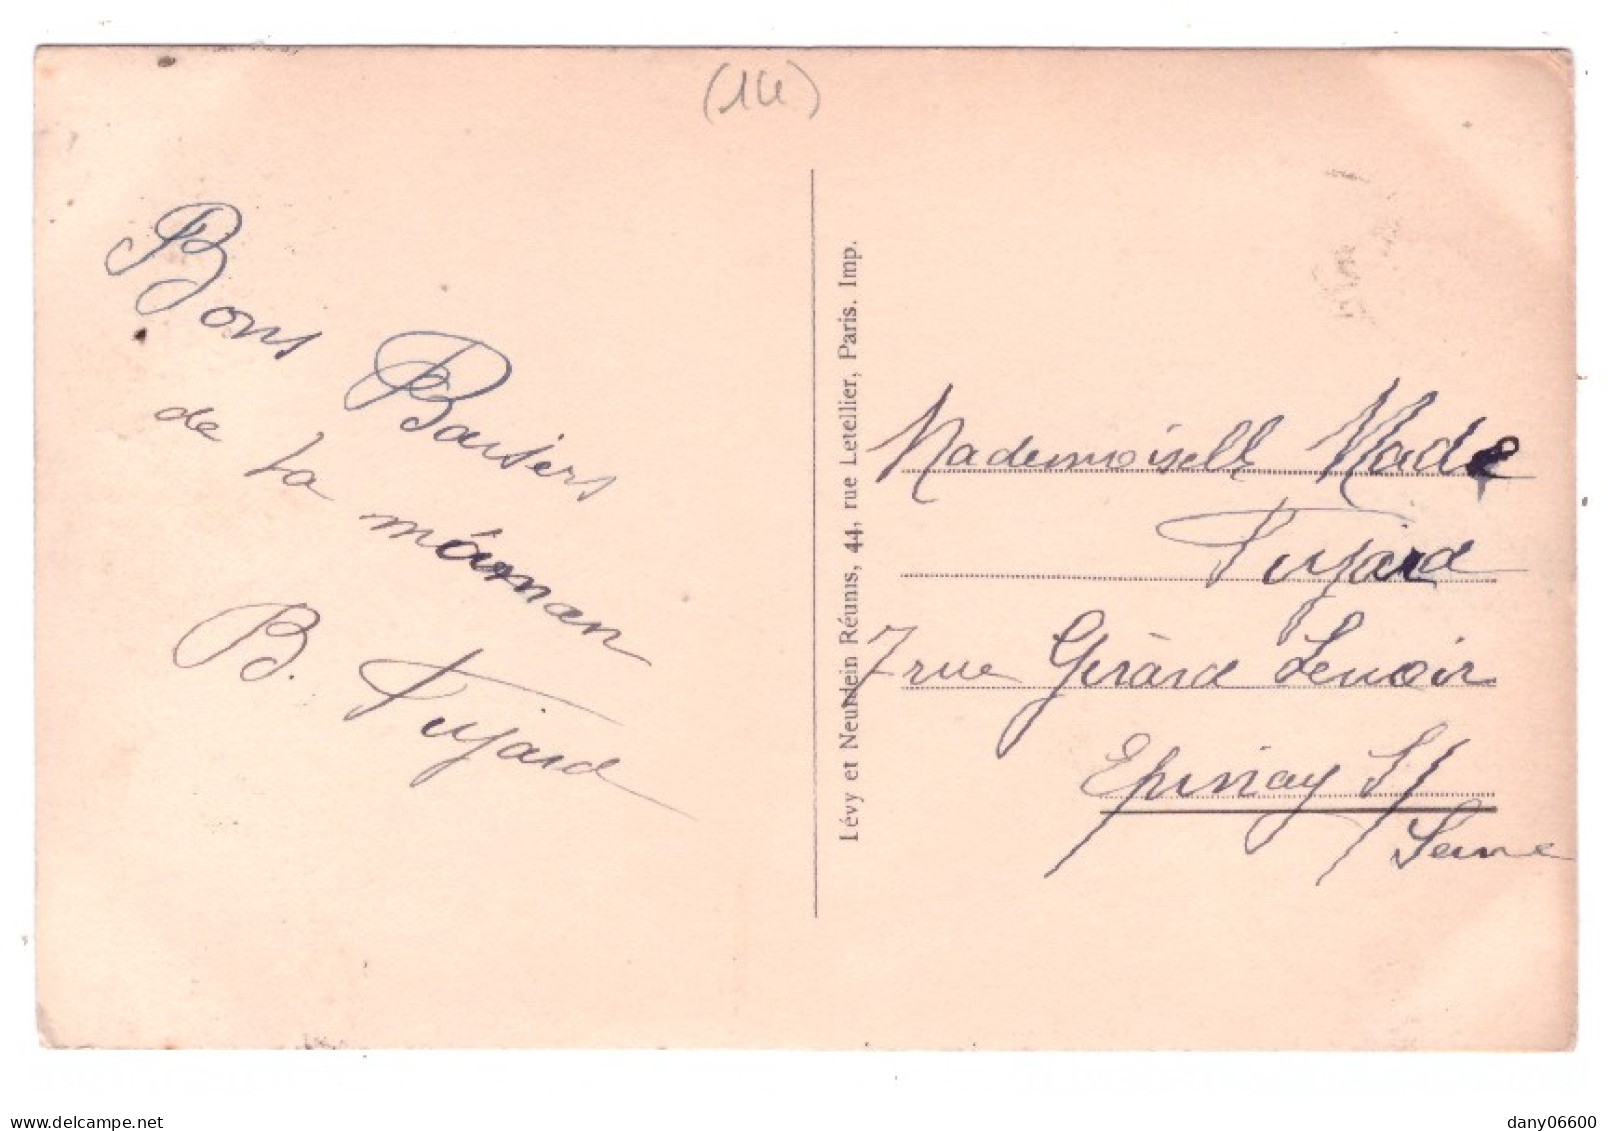 (14)
Bons Baisers
de ta maman
B. Pujard
Lévy et Neurdein Réunis, 44, rue Letellier, Paris. Imp.
Mademoiselle Made
Pujard
7 rue Gérard Lenoir
Epinay S/
Seine
delcampe.net
dany06600